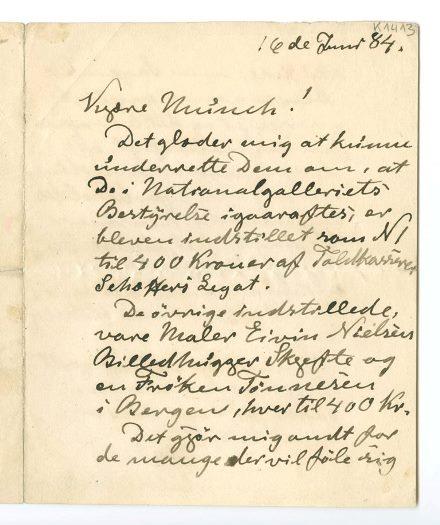 K1413
16de Juni 84.
Kjære Munch!
Det glæder mig at kunne
underrette Dem om, at
De i Nationalgalleriets
Bestyrelse igaaraftes, er
bleven indstillet som N1
til 400 Kroner af Toldkasserer
Schäffers Legat.
De øvrige indstillede,
vare Maler Eivin Nielsen
Billedhugger Skjefte og
en Frøken Tønnesen
i Bergen, hver til 400 Kr.
Det gjør mig ondt for
de mange der vil føle sig